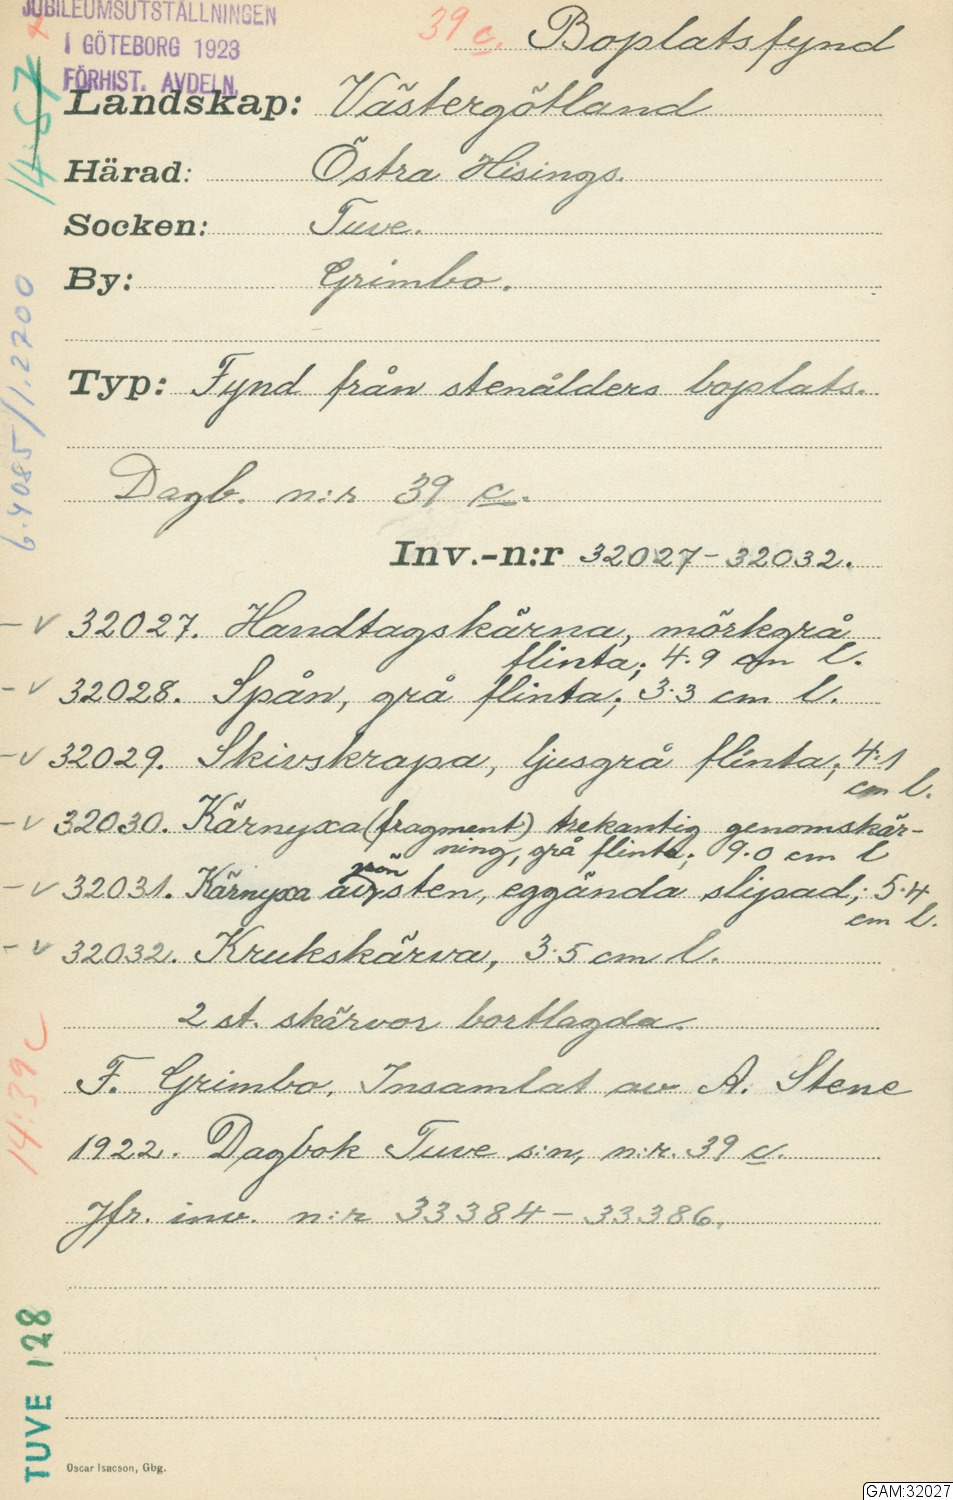 JUBILEUMSUTSTÄLLNINGEN
I GÖTEBORG 1923
FÖRHIST. AVDELN.
39 c. Boplatsfynd
Landskap: Västergötland
Härad: Östra Hisings.
Socken: Tuve.
By: Grimbo.
Typ: Fynd från stenålders boplats.
Dagb. n:r 39 c.
Inv.-n:r 32027-32032.
- v 32027. Handtagskärna, mörkgrå
flinta; 4.9 cm l.
- v 32028. Spån, grå flinta; 3.3 cm l.
- v 32029. Skivskrapa, ljusgrå flinta; 4.1
cm l.
- v 32030. Kärnyxa (fragment) trekantig genomskär-
ning, grå flinta; 9.0 cm l
grön
- v 32031. Kärnyxa av sten, eggända slipad; 5.4
cm l.
- v 32032. Krukskärva, 3.5 cm l.
2 st. skärvor bortlagda.
F. Grimbo. Insamlat av A. Stene
1922. Dagbok Tuve s:n, n:r. 39 c.
Jfr. inv. n:r 33384-33386.
14:57
6.4085/1.2200
14:39 c
TUVE 128
Oscar Isacson, Gbg.
GAM:32027